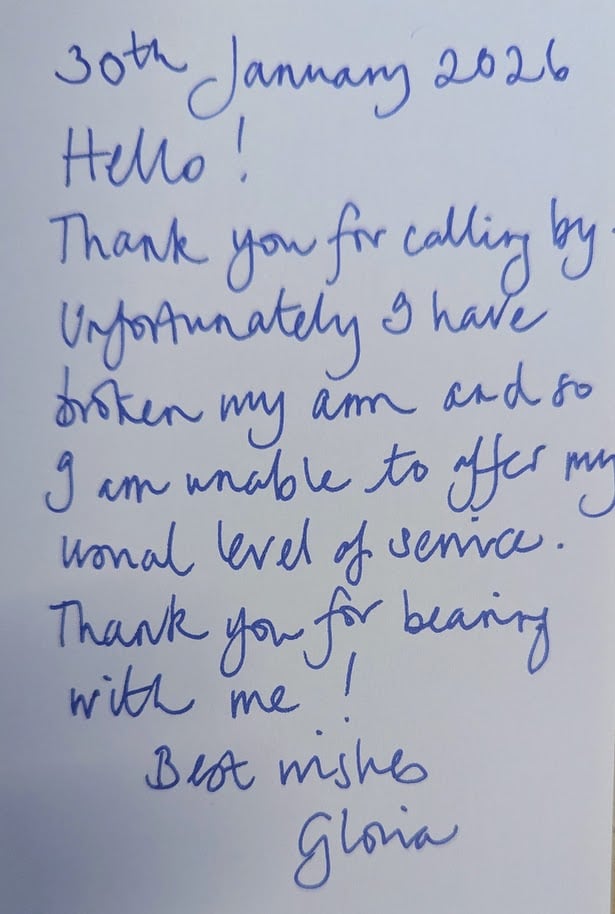 30th January 2026
Hello!
Thank you for calling by.
Unfortunately I have
broken my arm and so
I am unable to offer my
usual level of service.
Thank you for bearing
with me!
Best wishes
Gloria